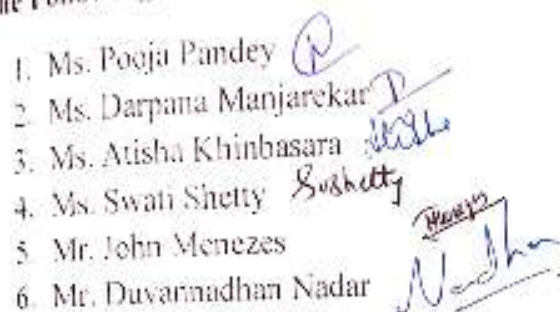 1. Ms. Pooja Pandey
2. Ms. Darpana Manjarekar
3. Ms. Atisha Khinbasara
4. Ms. Swati Shetty Sushetty
5. Mr. John Menezes
6. Mr. Duvannadhan Nadar